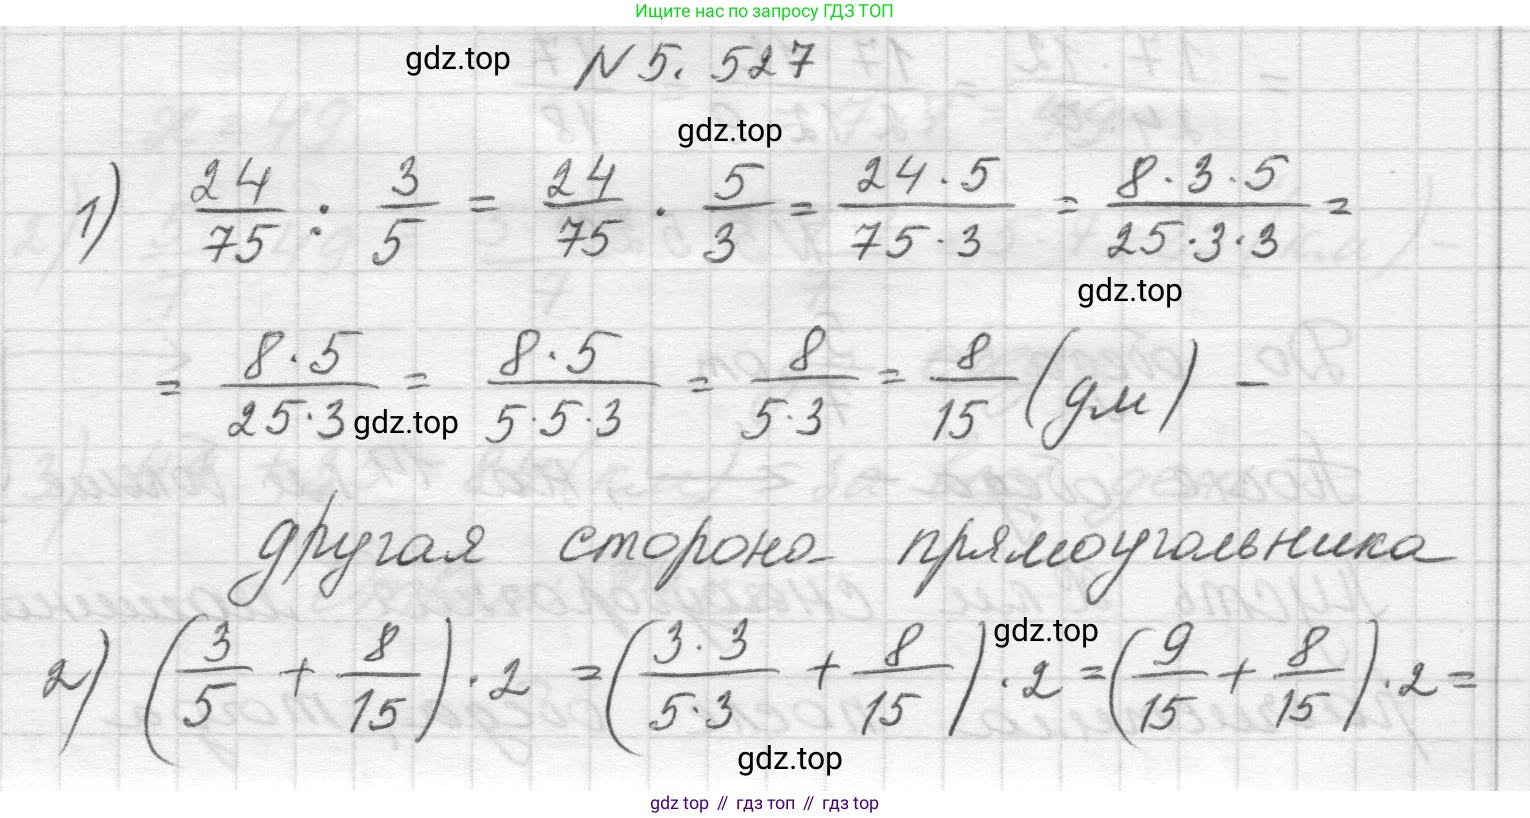 Ищите нас по запросу ГДЗ ТОП
gdz.top
N 5. 527
gdz.top
1) 24/75 : 3/5 = 24/75 · 5/3 = 24·5/75·3 = 8·3·5/25·3·3 =
gdz.top
= 8·5/25·3 = 8·5/5·5·3 = 8/5·3 = 8/15 (дм) –
gdz.top
другая сторона прямоугольника
gdz.top
2) (3/5 + 8/15) · 2 = (3·3/5·3 + 8/15) · 2 = (9/15 + 8/15) · 2 =
gdz.top
gdz top // гдз топ // гдз top